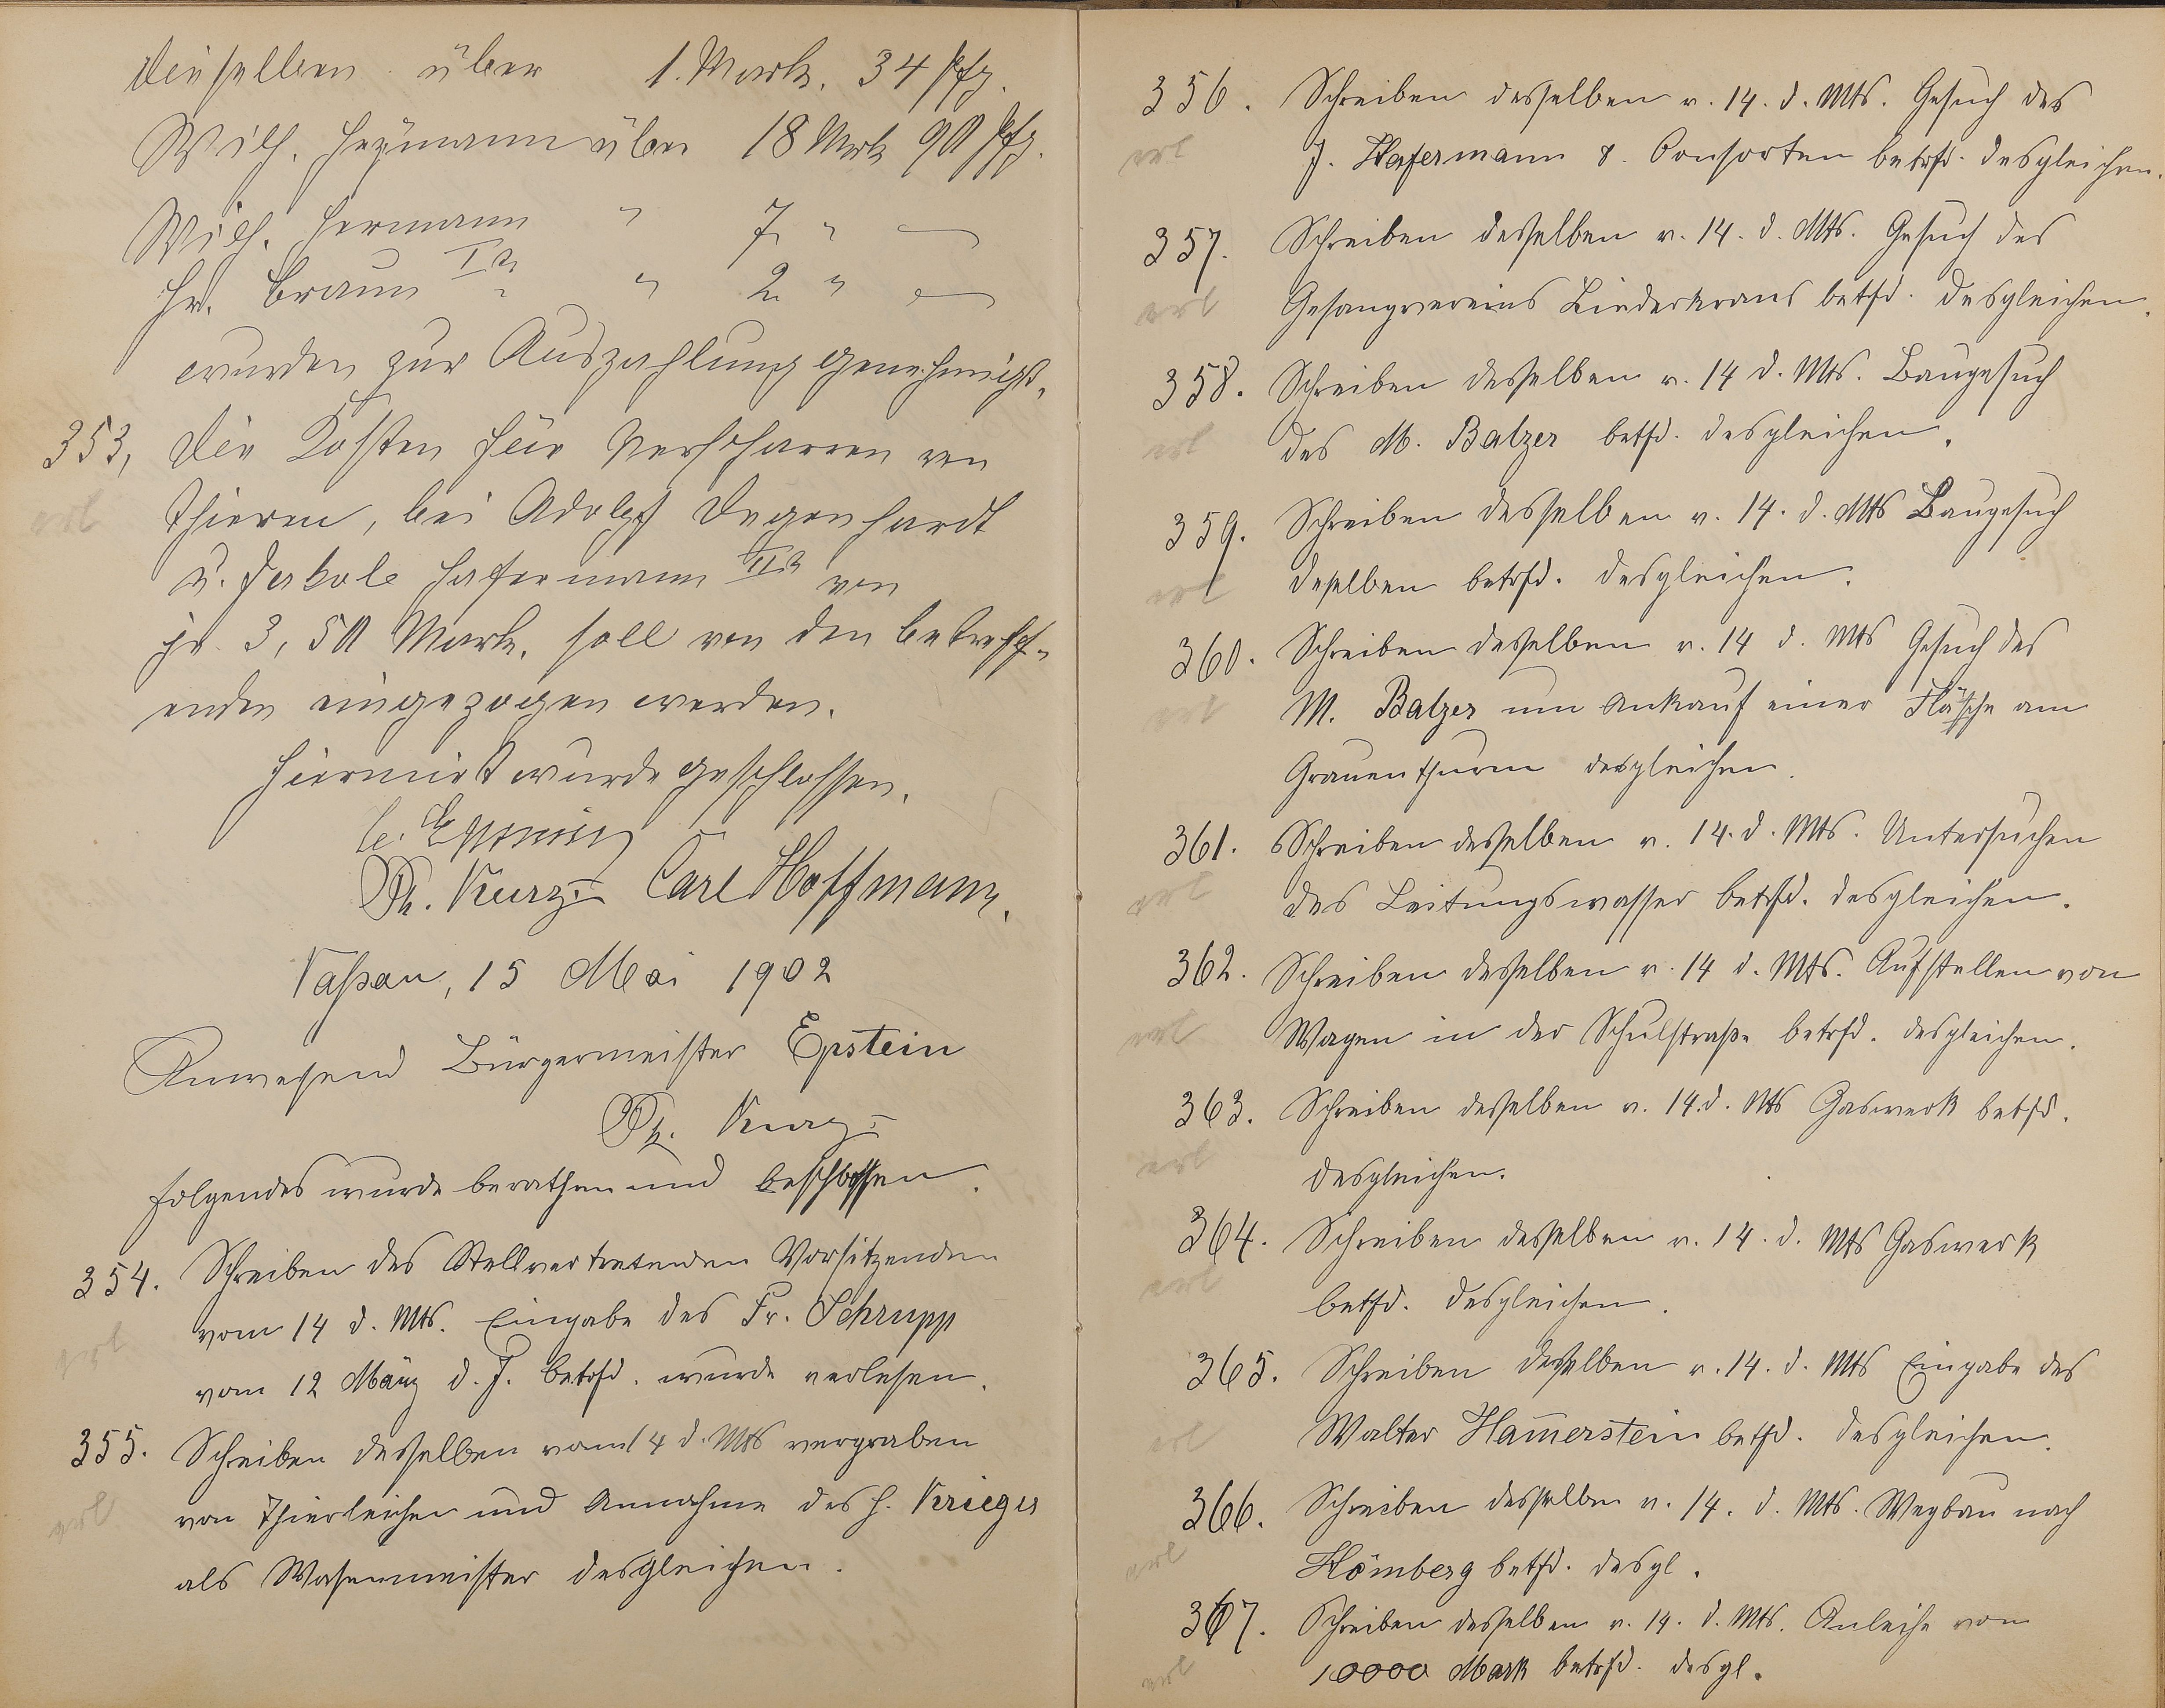 dieselben über 1. Mark. 34 Pfg.
Wilh. Heymann über 18 Mrk 90 Pfg.
Wilh. Hermann " 7. " —
Hr. Braun IIr " 2. " —
wurden zur Auszahlung genehmigt.
353, Die Kosten für Verscharren von
erl Thieren, bei Adolph Degenhardt
u. Jakob Hafermann IIr von
je 3,50 Mark, soll von den betreff-
enden eingezogen werden.
Hiermit wurde geschlossen.
Ph. Kurz Carl Hoffmann.
Naßau, 15 Mai 1902
Anwesend Bürgermeister Epstein
Ph. Kurz
folgendes wurde berathen und beschlossen.
354. Schreiben des Stellvertretenden Vorsitzenden
erl vom 14 d. Mts. Eingabe des Fr. Schrupp
vom 12 März d. J. betrfd. wurde verlesen.
355. Schreiben desselben vom 14 d. Mts vergraben
erl von Thierleichen und Annahme des H. Krieger
als Wasenmeister desgleichen.
356. Schreiben desselben v. 14. d. Mts. Gesuch des
erl J. Hafermann & Consorten betrfd. desgleichen.
357. Schreiben desselben v. 14. d. Mts. Gesuch des
erl Gesangvereins Liederkranz betfd. desgleichen.
358. Schreiben desselben v. 14 d. Mts. Baugesuch
erl des M. Balzer betfd. desgleichen.
359. Schreiben desselben v. 14. d. Mts Baugesuch
erl deselben betrfd. desgleichen.
360. Schreiben desselben v. 14 d. Mts Gesuch des
erl M. Balzer um Ankauf einer Fläche am
Grauenthurm desgleichen.
361. Schreiben desselben v. 14. d. Mts. Untersuchen
erl des Leitungswasser betrfd. desgleichen.
362. Schreiben desselben v. 14 d. Mts. Aufstellen von
erl Wagen in der Schulstraße betrfd. desgleichen.
363. Schreiben desselben v. 14. d. Mts Gaswerk betfd.
erl desgleichen.
364. Schreiben desselben v. 14. d. Mts Gaswerk
erl betfd. desgleichen.
365. Schreiben desselben v. 14. d. Mts Eingabe des
erl Walter Ham̅erstein betfd. desgleichen.
366. Schreiben desselben v. 14. d. Mts. Wegbau nach
erl Hömberg betfd. desgl.
367. Schreiben desselben v. 14. d. Mts. Anleihe von
erl 10000 Mark betrfd. desgl.